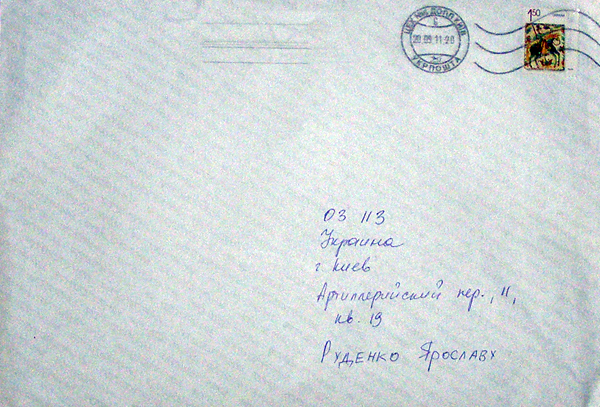 1.50
УКРПОШТА
03 113
Украина
г Киев
Артиллерийский пер., 11,
кв. 19
Руденко Ярославу